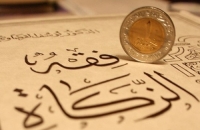 فقه
الزكاة